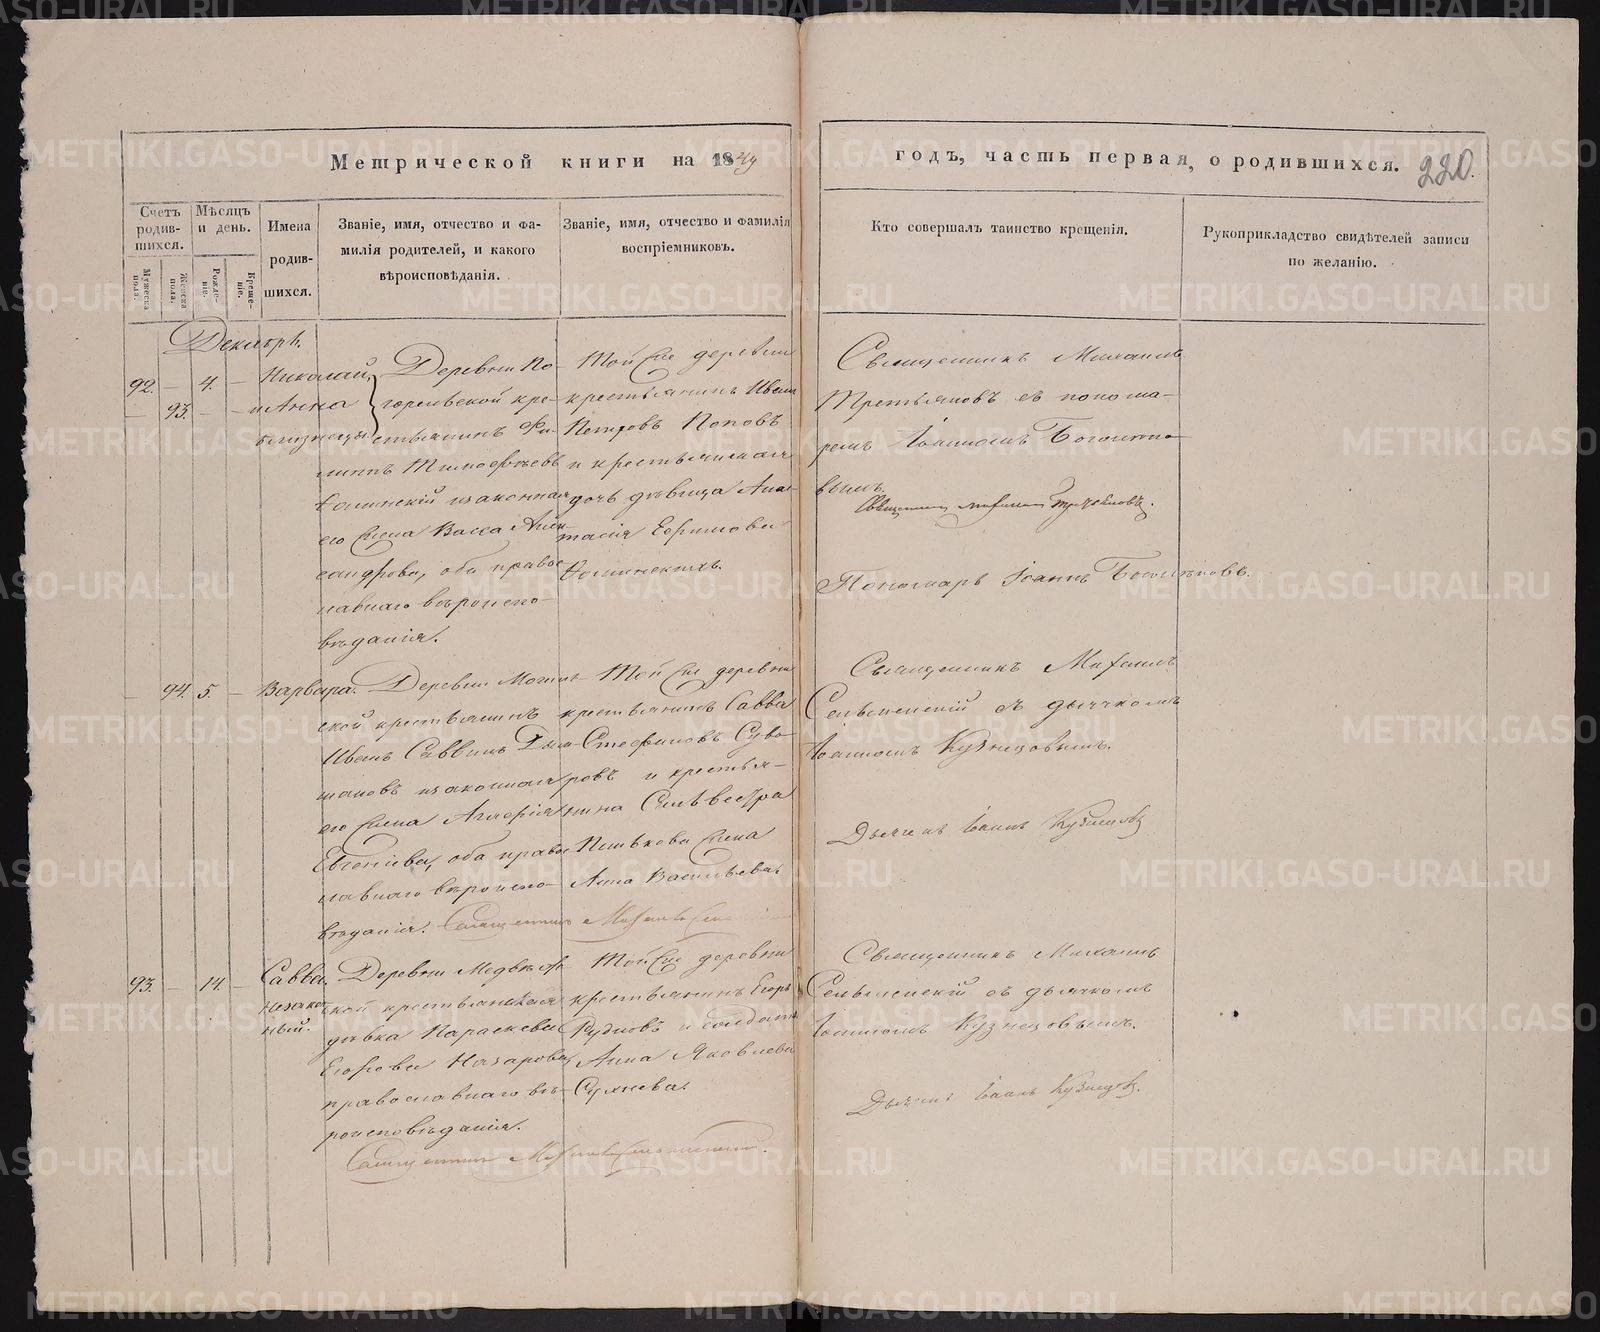 Метрической книги на 1849
годъ, часть первая, о родившихся. 220.
Счетъ родив-
шихся.
Мужеска пола.
Женска пола.
Мѣсяцъ и день.
Рожде-
ніе.
Креще-
ніе.
Имена
родив-
шихся.
Званіе, имя, отчество и фа-
милія родителей, и какого
вѣроисповѣданія.
Званіе, имя, отчество и фамилія
воспріемниковъ.
Кто совершалъ таинство крещенія.
Рукоприкладство свидѣтелей записи
по желанію.
Декабрь.
92. — 4. —
— 93. — —
Николай,
и Анна
близнецы
Деревни По-
горельской кре-
стьянинъ Фи-
липпъ Тимофѣевъ
и законная
его жена Васса Алек-
сандрова, оба право-
славнаго вѣроиспо-
вѣданія.
Той же деревни
крестьянинъ Иванъ
Петровъ Поповъ
и крестьянская
дочь дѣвица Анас-
тасія Ефимова
Священникъ Михаилъ
Третьяковъ съ понома-
ремъ Іоанномъ
вымъ.
Священникъ Михаилъ Третьяковъ.
Пономарь Іоаннъ
— 94. 5. —
Варвара.
Деревни
ской крестьянинъ
Иванъ Саввинъ
и законная
его жена
Евгеніева, оба право-
славнаго вѣроиспо-
вѣданія. Священникъ Михаилъ
Той же деревни
крестьянинъ Савва
Стефановъ Суво-
ровъ и крестья-
нина Сильвестра
Пенькова жена
Анна Васильева.
Священникъ Михаилъ
съ дьячкомъ
Іоанномъ Кузнецовымъ.
Дьячекъ Іоаннъ Кузнецовъ
93. — 14. —
Савва.
Незакон-
ный.
Деревни
кой крестьянская
дѣвка Параскева
Егорова Назарова,
православнаго вѣ-
роисповѣданія.
Священникъ Михаилъ
Той же деревни
крестьянинъ Егоръ
и солдатка
Анна Яковлева
Священникъ Михаилъ
съ дьячкомъ
Іоанномъ Кузнецовымъ.
Дьячекъ Іоаннъ Кузнецовъ.
METRIKI.GASO-URAL.RU